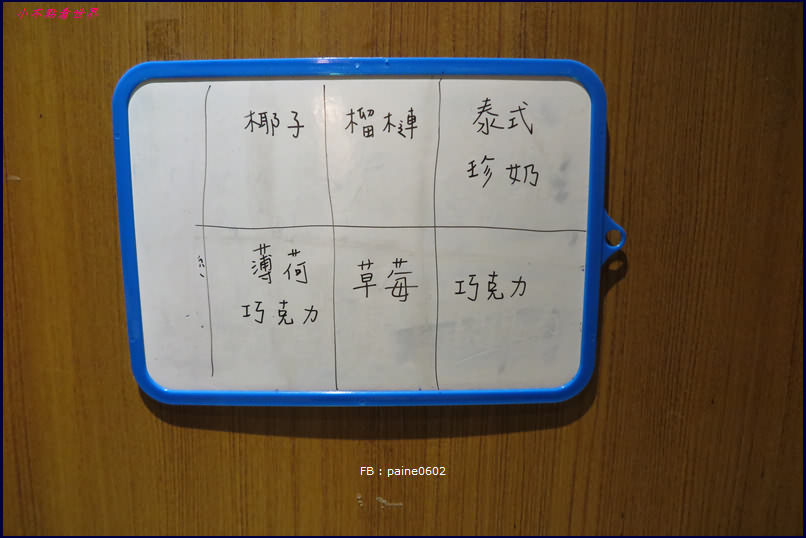 小不點看世界
椰子
榴槤
泰式
珍奶
薄荷
巧克力
草莓
巧克力
FB : paine0602